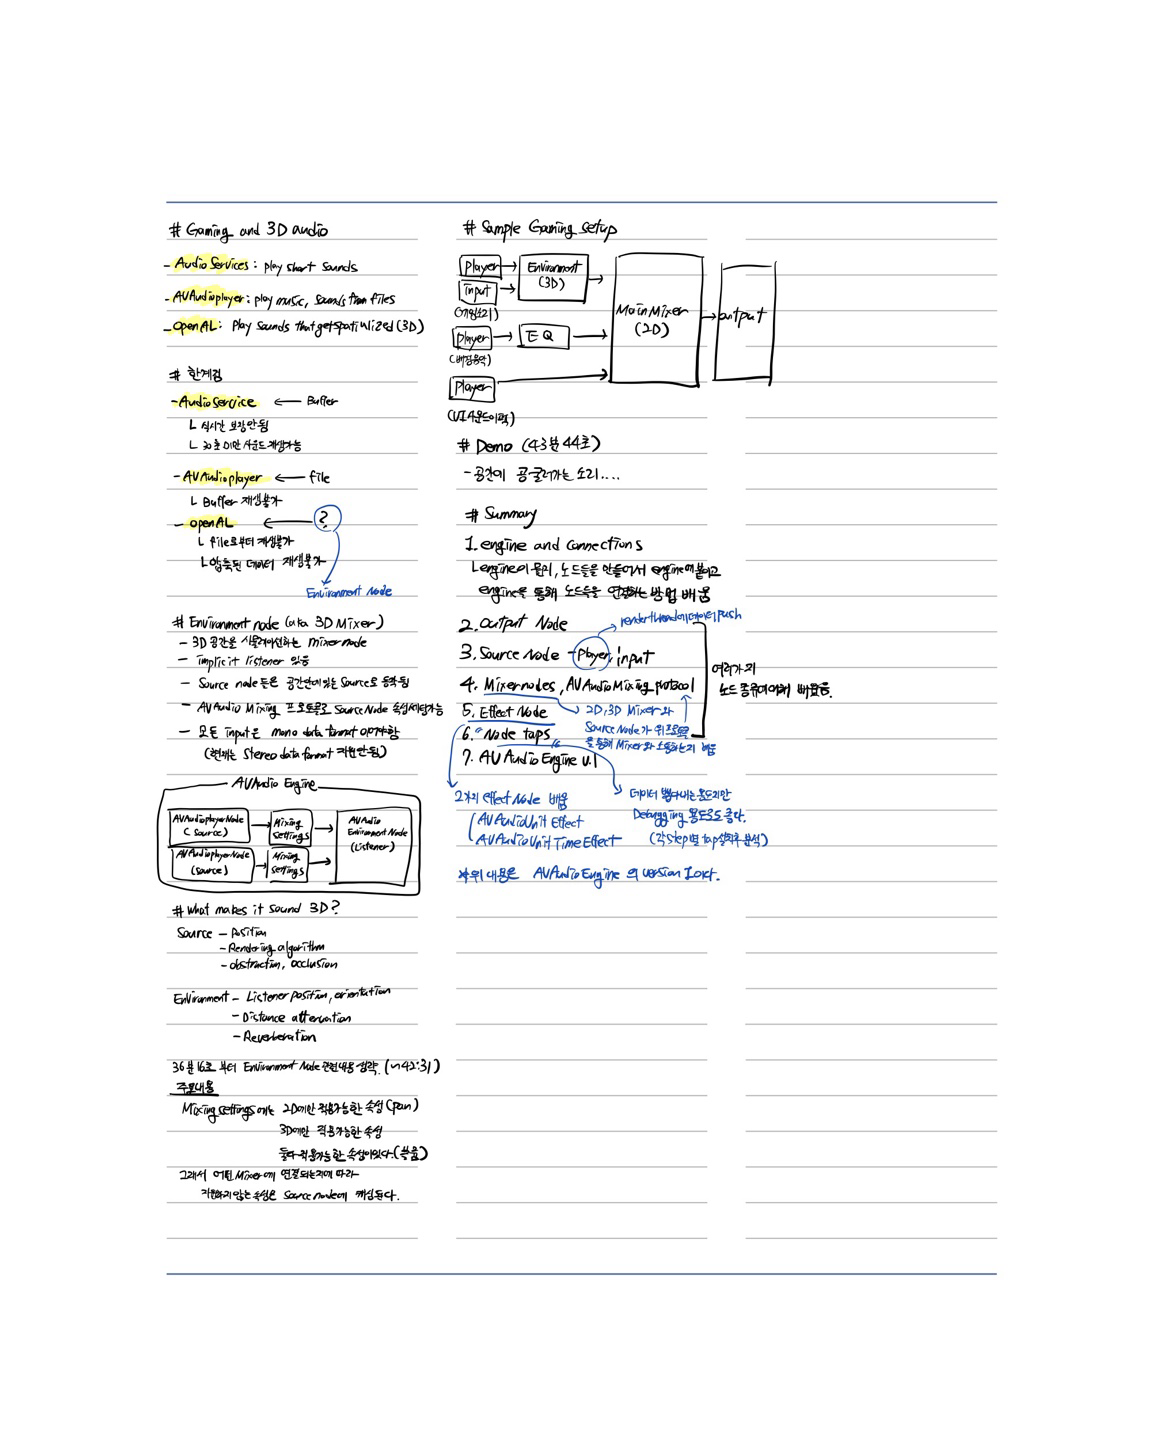 # Gaming and 3D audio
- Audio Services : play short sounds
- AVAudioplayer : play music, sounds from files
- OpenAL : Play sounds that get spatialized (3D)
# 한계점
- Audio Service ← Buffer
ㄴ 실시간 보장안됨
ㄴ 30초 미만 사운드 재생가능
- AVAudioplayer ← file
ㄴ Buffer 재생불가
- openAL ← ?
ㄴ file로부터 재생불가
ㄴ 압축된 데이터 재생불가
Environment Node
# Environment node (aka 3D Mixer)
- 3D 공간을 시뮬레이션하는 mixer node
- implicit listener 있음
- Source node 들은 공간안에 있는 Source로 동작됨
- AVAudio Mixing 프로토콜로 Source Node 속성세팅가능
- 모든 input은 mono data format 이여야함
(현재는 Stereo data format 지원안됨)
AVAudio Engine
AVAudioplayerNode
(source)
Mixing
settings
AVAudio
Environment Node
(Listener)
AVAudioplayerNode
(source)
Mixing
settings
# What makes it sound 3D?
Source - Position
- Rendering algorithm
- obstruction, occlusion
Environment - Listener position, orientation
- Distance attenuation
- Reverberation
36분 16초 부터 Environment Node 관련내용 생략. (~42:31)
주요내용
Mixing settings에는 2D에만 적용가능한 속성 (pan)
3D에만 적용가능한 속성
둘다 적용가능한 속성이있다. (볼륨)
그래서 어떤 Mixer에 연결되는지에 따라
지원하지 않는 속성은 Source node에 캐싱된다.
# Sample Gaming setup
player
Environment
(3D)
input
(게임소리)
player
EQ
(배경음악)
player
(UI 사운드이펙)
Main Mixer
(2D)
output
# Demo (43분 44초)
- 공간에 공 굴러가는 소리....
# Summary
1. engine and connections
ㄴ engine이 뭔지, 노드들을 만들어서 engine에 붙이고
engine을 통해 노드들을 연결하는 방법 배움
2. output Node
render thread에 데이터 push
3. Source Node - player, input
4. Mixer nodes, AVAudio Mixing protocol
5. Effect Node
2D, 3D Mixer와
Source Node가 위 프로토콜
을 통해 Mixer와 소통하는지 배움
6. Node taps
7. AVAudio Engine v.1
여러가지
노드 종류에 대해 배웠음.
2가지 effect Node 배움
AVAudioUnit Effect
AVAudioUnit Time Effect
데이터 뽑아내는 용도지만
Debugging 용도로도 좋다.
(각 step별 tap설치후 분석)
※위 내용은 AVAudio Engine 의 version 1.0 이다.